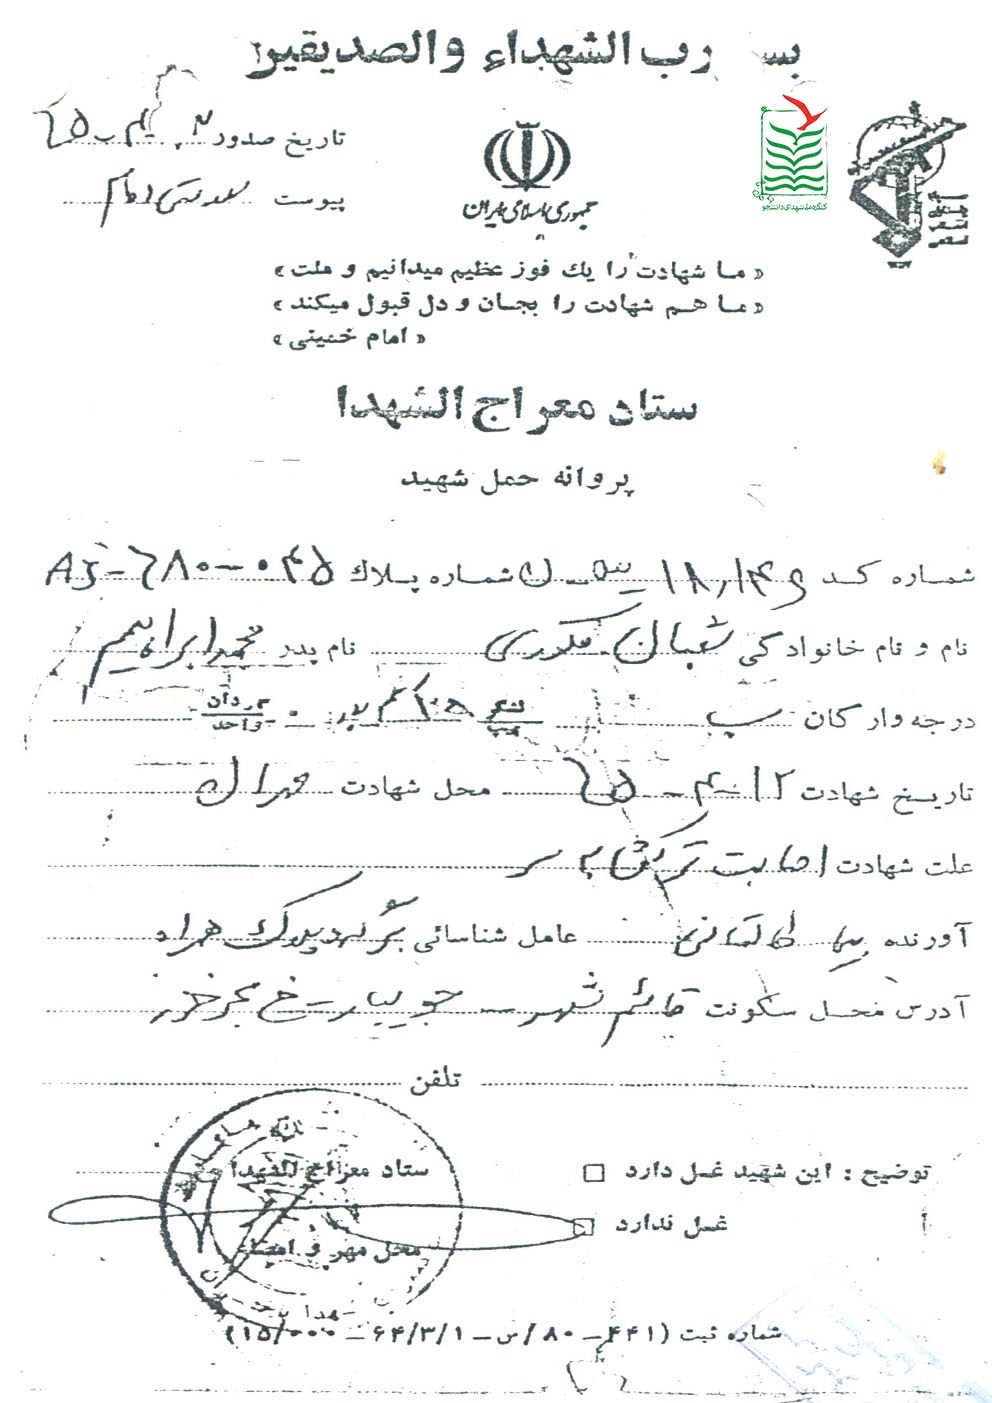 بسـ رب الشهداء والصدیقین
تاریخ صدور ۲ـ۴ـ۶۵
پیوست
جمهوری اسلامی ایران
کنگره ملی شهدای دانشجو
« ما شهادت را یك فوز عظیم میدانیم و ملت »
« ما هم شهادت را بجان و دل قبول میکند »
« امام خمینی »
ستاد معراج الشهدا
پروانه حمل شهید
شماره کد شماره پلاك ۰۴۵-۶۸۰-AJ
نام و نام خانوادگی شعبان نام پدر محمد ابراهیم
درجه وارکان تیپ ۲۵ گردان واحد
تاریخ شهادت ۱۲-۴-۶۵ محل شهادت مهران
علت شهادت اصابت ترکش به سر
آورنده عامل شناسائی برگه و پلاک همراه
آدرس محل سکونت قائم شهر - جویبار - خ بحر خزر
تلفن
توضیح : این شهید غسل دارد □ ستاد معراج الشهدا
غسل ندارد □ محل مهر و امضاء
شماره ثبت (۴۴۱ - ۸۰/س - ۶۴/۳/۱ - ۱۵/۰۰۰)